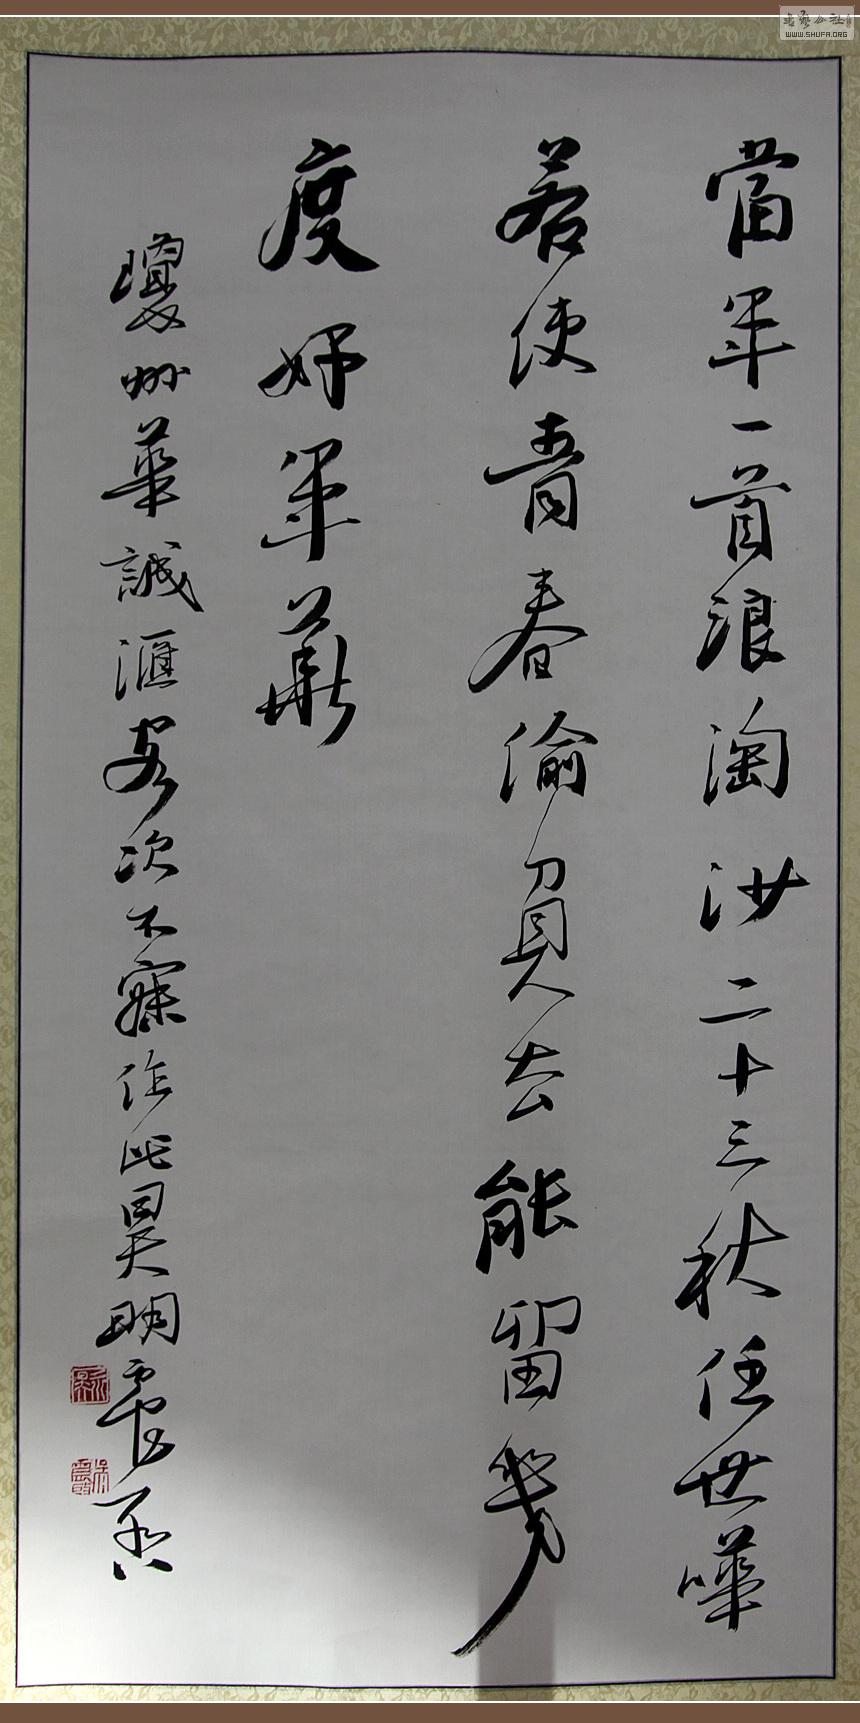 當年一首浪淘沙二十三秋任世嘩
若使青春偷換去能留幾
度好年華
瓊州華誠滙客次不寐作此
WWW.SHUFA.ORG